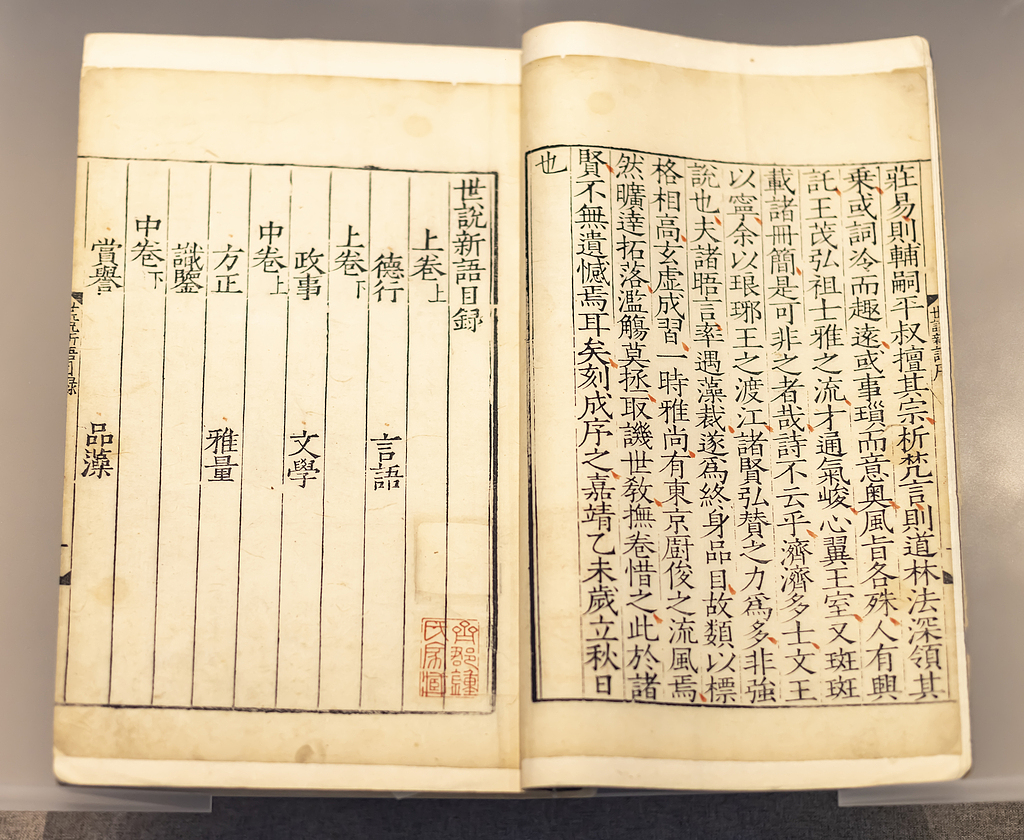 世說新語序
莊易則輔嗣平叔擅其宗析梵言則道林法深領其
乗或詞冷而趣遠或事瑣而意奥風旨各殊人有興
託王茂弘祖士雅之流才通氣峻心翼王室又斑斑
載諸冊簡是可非之者哉詩不云乎濟濟多士文王
以寧余以琅琊王之渡江諸賢弘賛之力為多非強
說也夫諸晤言率遇藻裁遂為終身品目故類以標
格相高玄虛成習一時雅尚有東京廚俊之流風焉
然曠達拓落濫觴莫拯取譏世敎撫卷惜之此於諸
賢不無遺憾焉耳矣刻成序之嘉靖乙未歲立秋日
也
世說新語目録
上卷上
德行 言語
上卷下
政事 文學
中卷上
方正 雅量
識鑒
中卷下
賞譽 品藻
世說新語目録